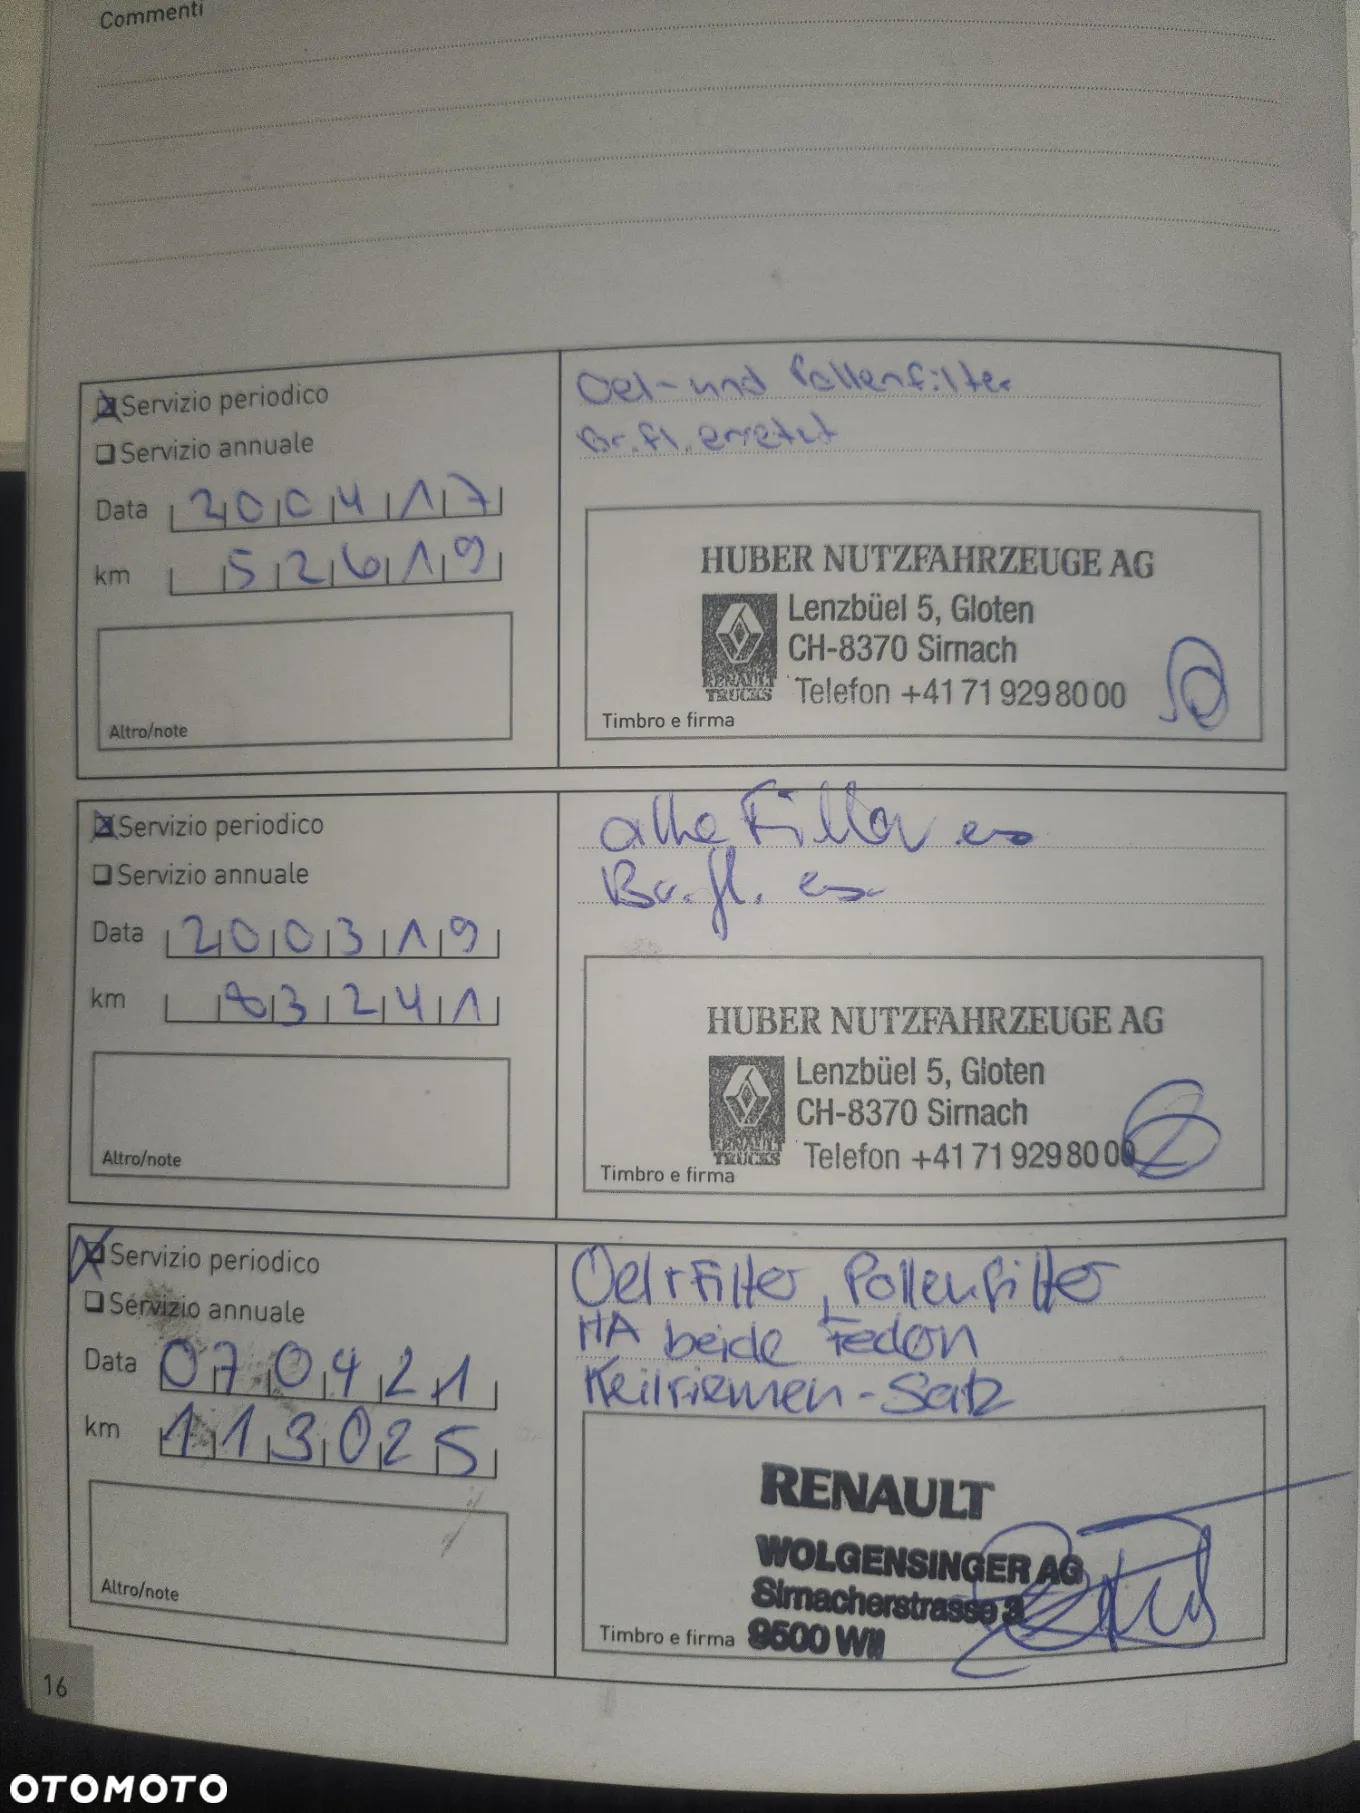 Commenti
Servizio periodico
Servizio annuale
Data 200417
km 52619
Altro/note
Oel- und Pollenfilter
Br.fl. ersetzt
HUBER NUTZFAHRZEUGE AG
Lenzbüel 5, Gloten
CH-8370 Sirnach
RENAULT
TRUCKS
Telefon +41 71 929 80 00
Timbro e firma
Servizio periodico
Servizio annuale
Data 200319
km 83241
Altro/note
alle Filter es
Br.fl. es
HUBER NUTZFAHRZEUGE AG
Lenzbüel 5, Gloten
CH-8370 Sirnach
RENAULT
TRUCKS
Telefon +41 71 929 80 00
Timbro e firma
Servizio periodico
Servizio annuale
Data 070421
km 113025
Altro/note
Oel+Filter, Pollenfilter
HA beide Federn
Keilriemen-Satz
RENAULT
WOLGENSINGER AG
Sirnacherstrasse 3
9500 Wil
Timbro e firma
16
OTOMOTO